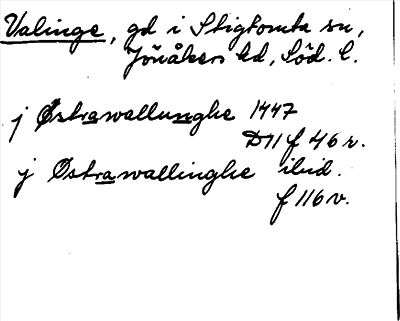 Valinge, gd i Stigtomta sn,
Jönåkers hd, Söd. l.
j Østrawallunghe 1447
D11 f 46 r.
j Østrawallinghe ibid.
f 116 v.